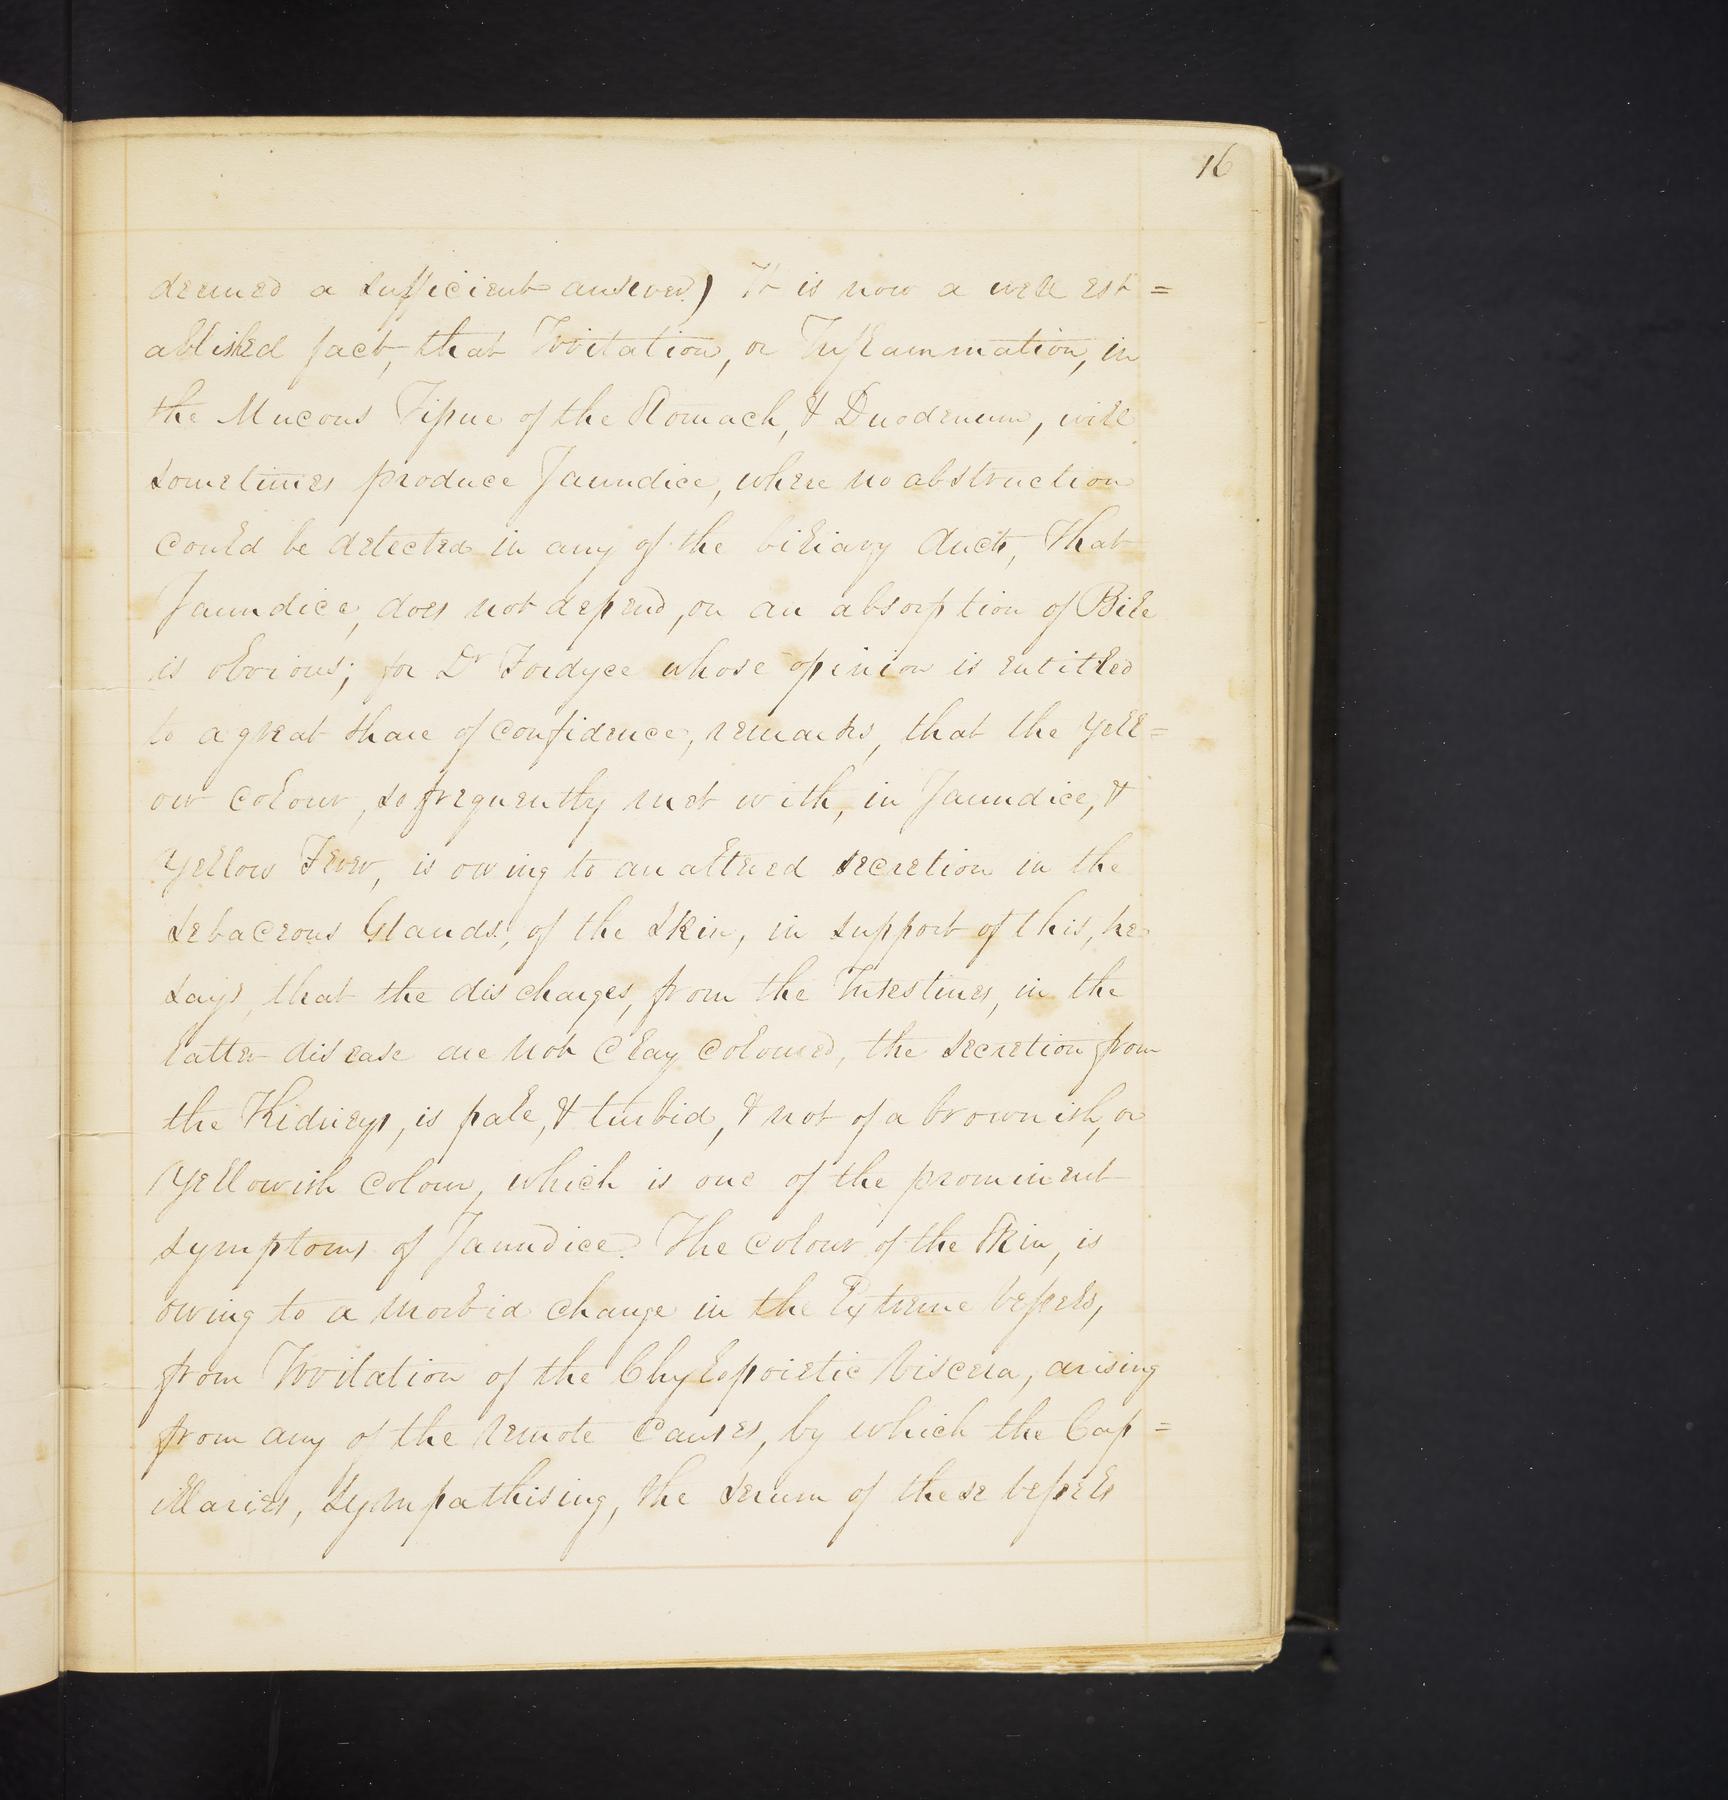 16
deemed a sufficient answer) It is now a well est=
ablished fact, that Irritation, or Inflammation, in
the Mucous Tissue of the Stomach, & Duodenum, will
sometimes produce Jaundice, where no abstruction
could be detected in any of the biliary ducts, that
Jaundice, does not depend, on an absorption of Bile
is obvious; for Dr Fordyce whose opinion is entitled
to a great share of confidence, remarks, that the yell=
ow colour, so frequently met with, in Jaundice, &
Yellow Fever, is owing to an altered secretion in the
Sebaceous Glands, of the Skin, in support of this, he
says, that the discharges, from the Intestines, in the
latter disease are not Clay coloured, the secretion from
the Kidneys, is pale, & turbid, & not of a brownish, or
Yellowish colour, which is one of the prominent
symptoms of Jaundice. The colour of the Skin, is
owing to a morbid change in the Extreme Vessels,
from Irritation of the Chylopoietic Viscera, arising
from any of the remote Causes, by which the Cap=
illaries, Sympathising, the serum of these Vessels